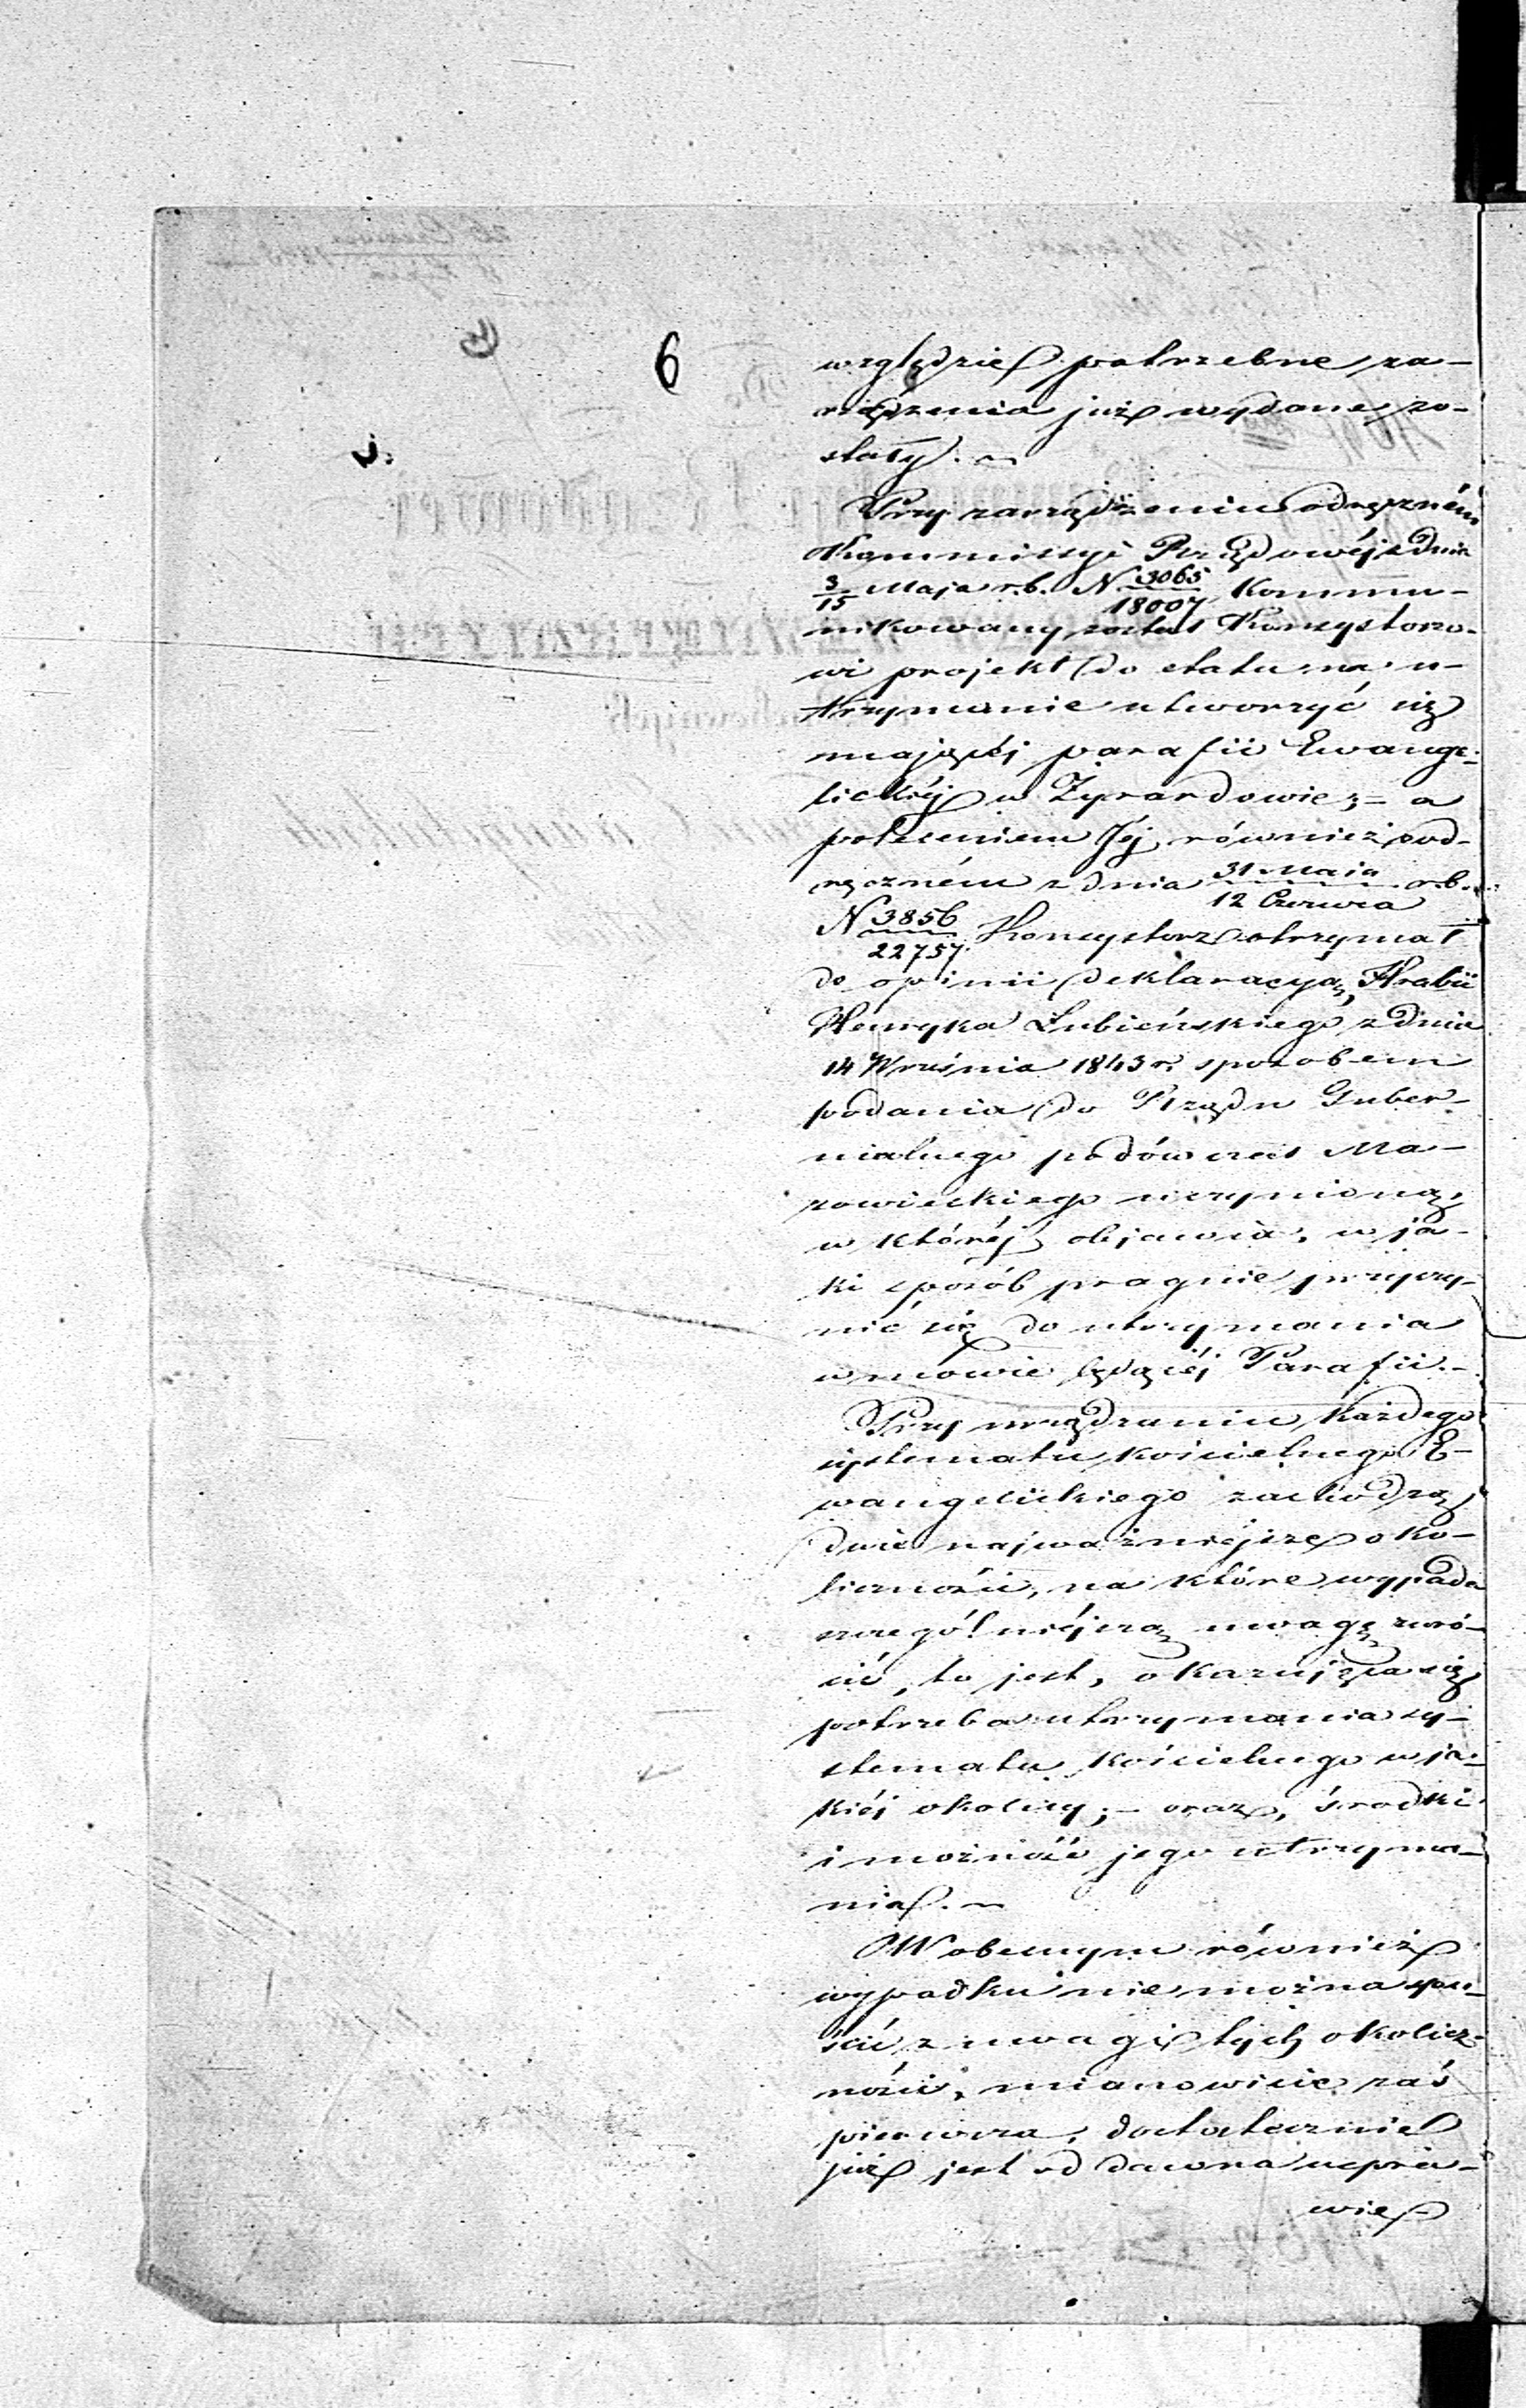 6
względzie potrzebne za-
rządzenia już wydane zo-
stały.
Przy zarządzeniu odręczném
Kommissyi Rządowéj z dnia
3/15 Maja r.b. N 3065/18007 kommu-
nikowany został Konsystorzo-
wi projekt do etatu na u-
trzymanie utworzyć się
mającéj parafii Ewange-
lickiéj w Żyrardowie; – a
poleceniem Jéj również od-
ręczném z dnia 31 Maja/12 Czerwca r.b.
N 3856/22757 Konsystorz otrzymał
do opinii deklaracyą Hrabii
Henryka Łubieńskiego z dnia
14 Września 1843 r. sposobem
podania do Rządu Guber-
nialnego podówczas Ma-
zowieckiego uczynioną,
w któréj objawia, w ja-
ki sposób pragnie przyczy-
nić się do utrzymania
w mowie będącéj Parafii. –
Przy urządzaniu każdego
systematu kościelnego E-
wangelickiego zachodzą
dwie najważniejsze oko-
liczności, na które wypada
szczególniéjszą uwagę zwró-
cić, to jest, okazująca się
potrzeba utrzymania sy-
stematu kościelnego w ja-
kiéj okolicy; – oraz, środki
i możność jego utrzyma-
nia.
W obecnym również
wypadku nie można spu-
ścić z uwagi tych okolicz-
ności, mianowicie zaś
pierwsza, dostatecznie
już jest od dawna uspra-
wie